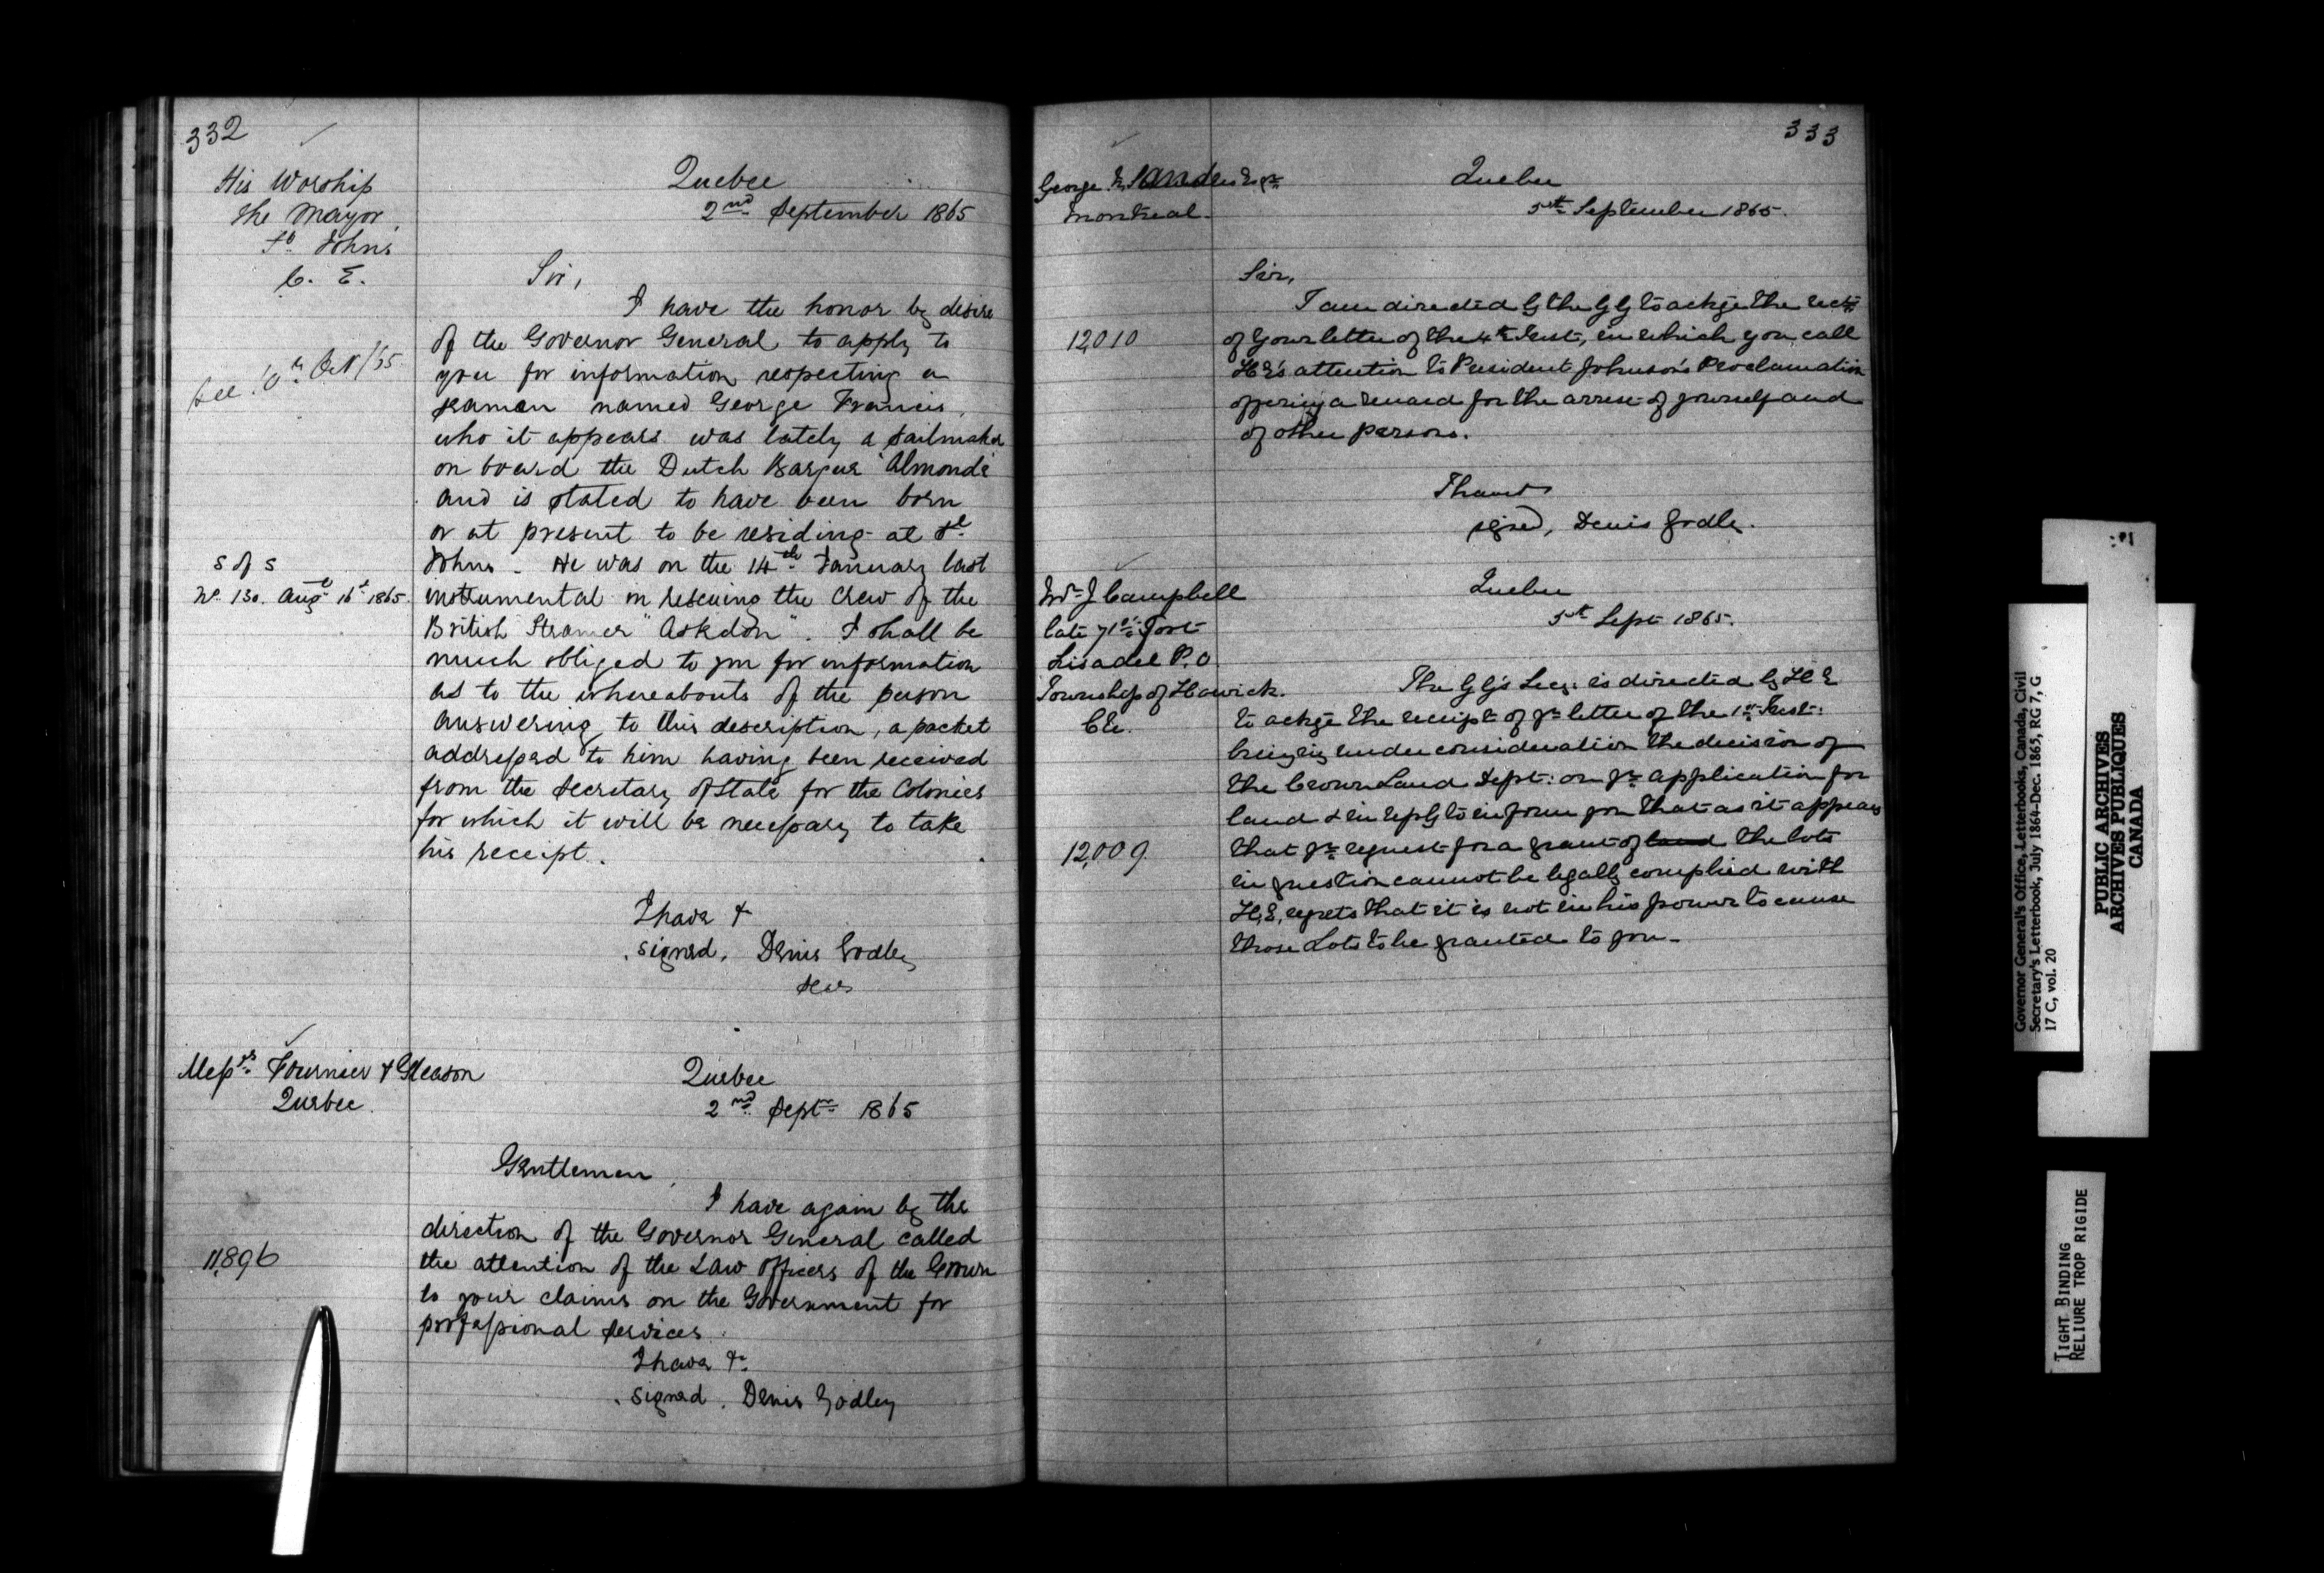 332
His Worship
the Mayor
St Johns
C. E.
Quebec
2nd September 1865
Sir,
I have the honor by desire
of the Governor General to apply to
you for information respecting a
seaman named George Francis,
who it appears was lately a sailmaker
on board the Dutch Barque "Almonde"
and is stated to have been born
or at present to be residing at St
Johns - He was on the 14th January last
instrumental in rescuing the Crew of the
British Steamer "Askdon". I shall be
much obliged to you for information
as to the whereabouts of the person
answering to this description, a packet
addressed to him having been received
from the Secretary of State for the Colonies
for which it will be necessary to take
his receipt.
See 10th Oct/65
S of S
No. 130. Augt 16t 1865.
I have &
signed, Denis Godley
Secy
Messrs Fournier & Gleason
Quebec
Quebec
2nd Septr 1865
Gentlemen,
I have again by the
direction of the Governor General called
the attention of the Law Officers of the Crown
to your claims on the Government for
professional services.
11,896
I have &c
signed. Denis Godley
333
George N. Sanders Esqre
Montreal
Quebec
5th September 1865.
Sir,
I am directed by the GG to ackge the rect
of your letter of the 4th Inst, in which you call
HE's attention to President Johnson's Proclamation
offering a reward for the arrest of yourself and
of other persons.
12,010
I have &
signed, Denis Godley.
Wm J Campbell
late 71st Foot
Lisadel P.O.
Township of Howick.
CE.
Quebec
5th Sept 1865.
The GG's Secy: is directed by HE
to ackge the receipt of yr letter of the 1st Inst:
bringing under consideration the decision of
the Crown Land Dept: on yr application for
land & in reply to inform you that as it appears
that yr request for a grant of land the lots
in question cannot be legally complied with
H,E, regrets that it is not in his power to cause
those Lots to be granted to you.
12,009
Governor General's Office, Letterbooks, Canada, Civil
Secretary's Letterbook, July 1864-Dec. 1865, RG 7, G
17 C, vol. 20
PUBLIC ARCHIVES
ARCHIVES PUBLIQUES
CANADA
TIGHT BINDING
RELIURE TROP RIGIDE